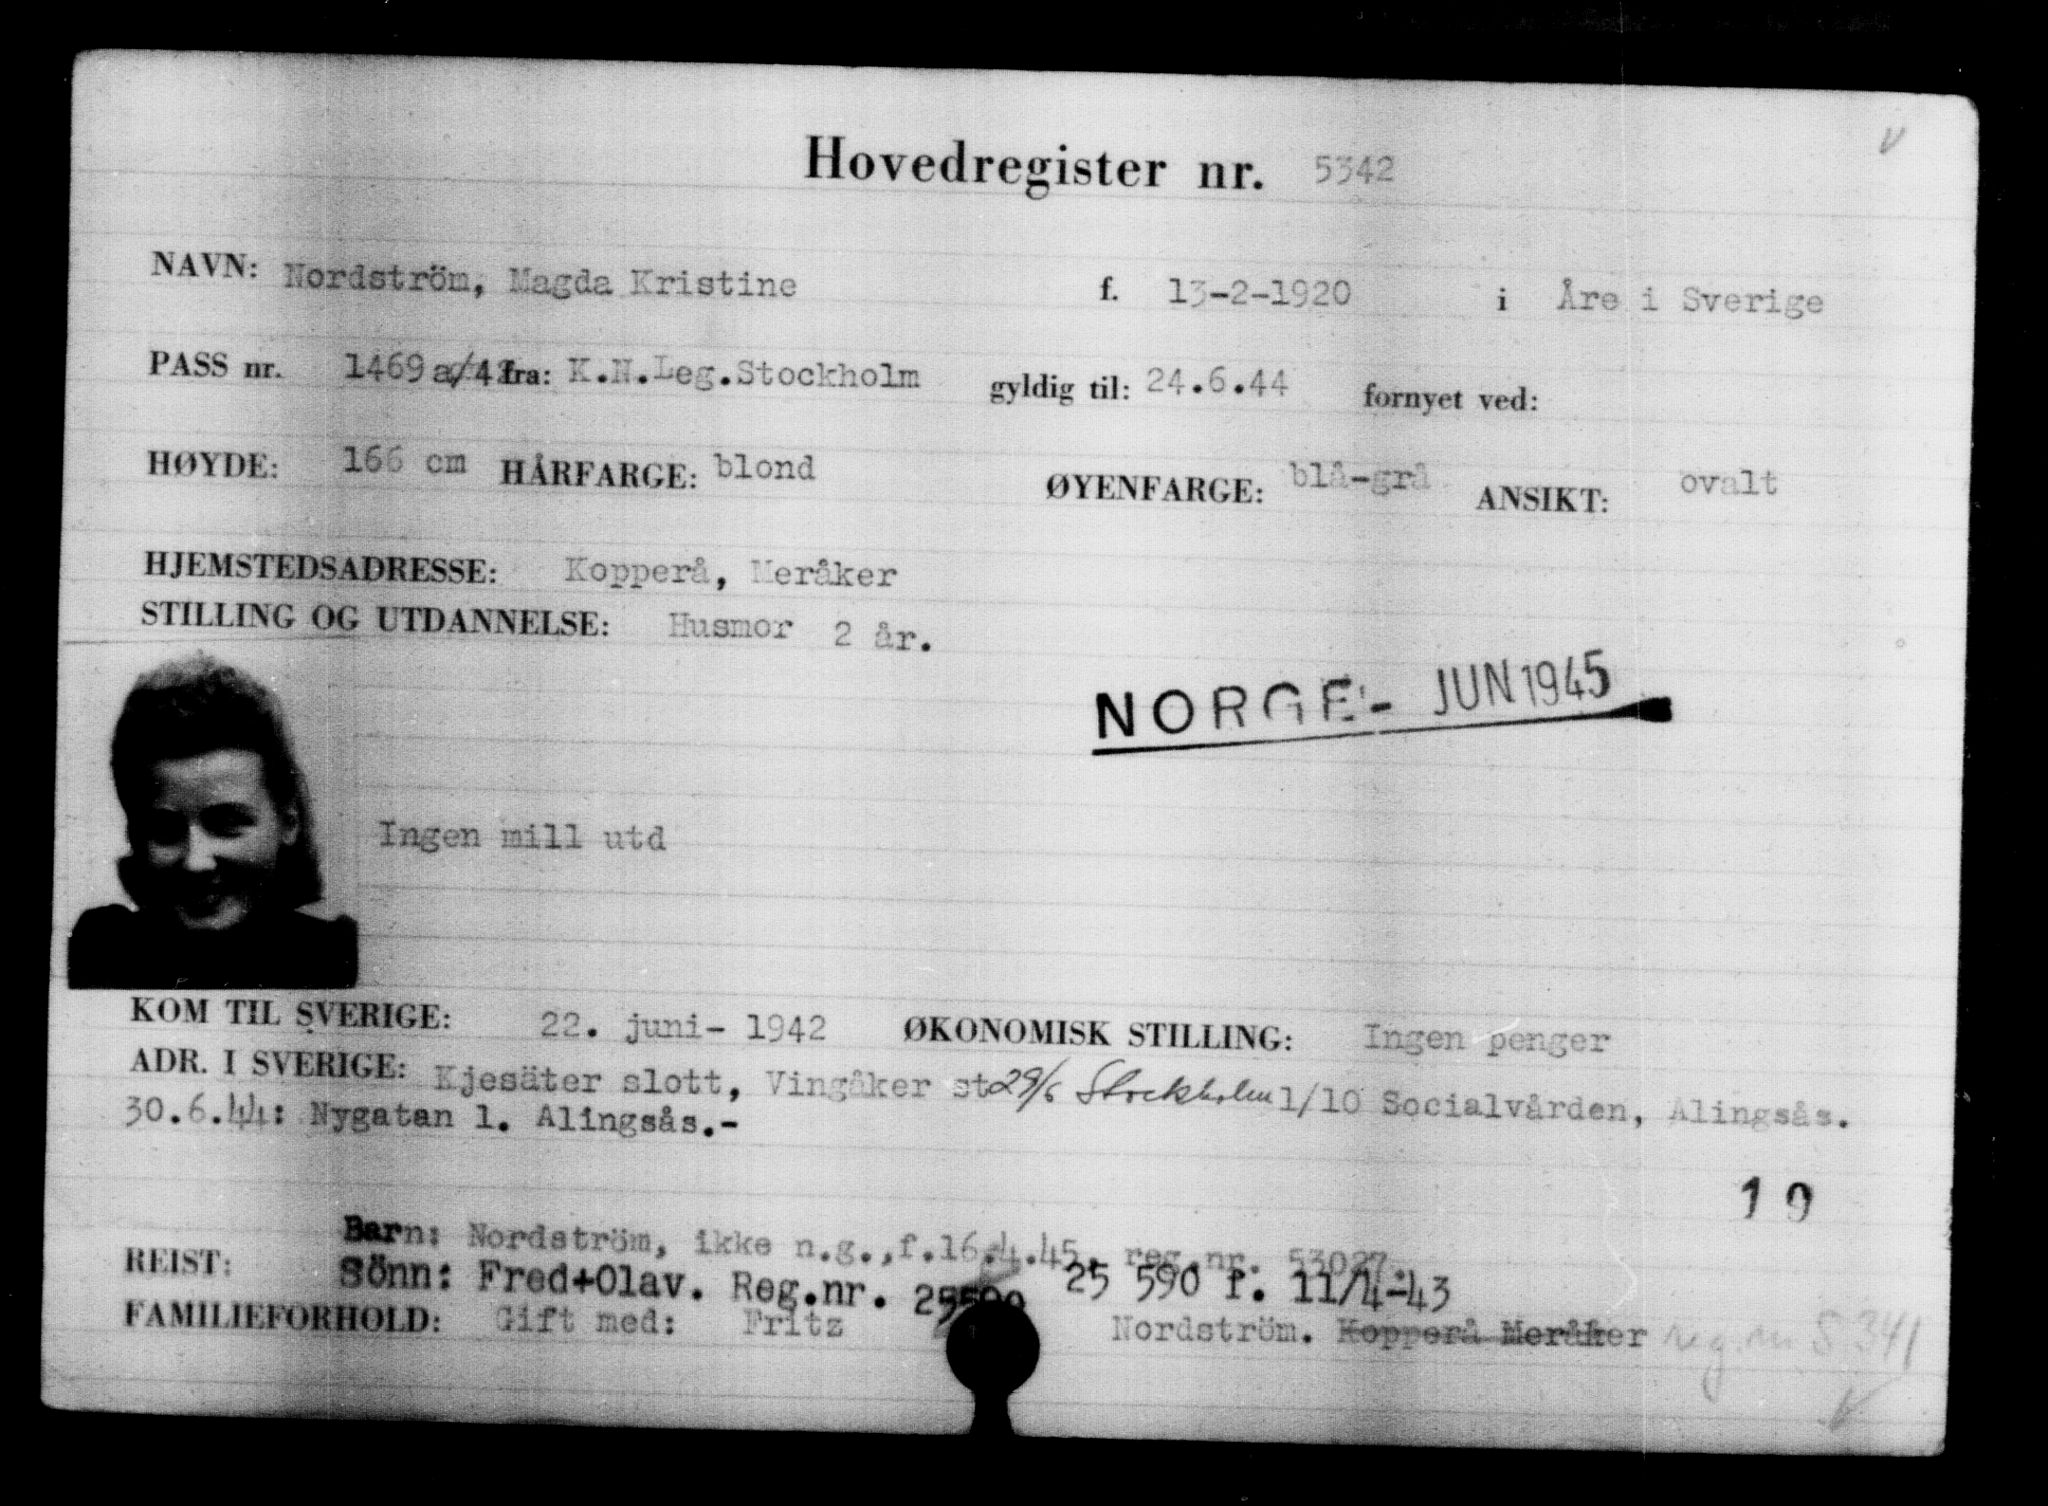 Hovedregister nr. 5342
NAVN: Nordström, Magda Kristine f. 13-2-1920 i Åre i Sverige
PASS nr. 1469 a/42 fra: K.N.Leg.Stockholm gyldig til: 24.6.44 fornyet ved:
HØYDE: 166 cm HÅRFARGE: blond ØYENFARGE: blå-grå ANSIKT: ovalt
HJEMSTEDSADRESSE: Kopperå, Meråker
STILLING OG UTDANNELSE: Husmor 2 år.
NORGE - JUN 1945
Ingen mill utd
KOM TIL SVERIGE: 22. juni- 1942 ØKONOMISK STILLING: Ingen penger
ADR. I SVERIGE: Kjesäter slott, Vingåker st 29/6 Stockholm 1/10 Socialvården, Alingsås.
30.6.44: Nygatan 1. Alingsås.-
10
Barn: Nordström, ikke n.g.,f.16.4.45. reg.nr. 53027.
REIST: Sönn: Fred+Olav. Reg.nr. 25 590 f. 11/4-43
FAMILIEFORHOLD: Gift med: Fritz Nordström. Kopperå Meråker reg.nr 5341